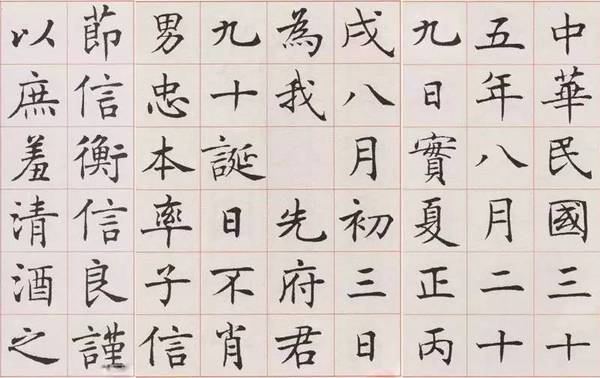 中華民國三十
五年八月二十
九日實夏正丙
戌八月初三日
為我　先府君
九十誕日不肖
男忠本率子信
節信衡信良謹
以庶羞清酒之